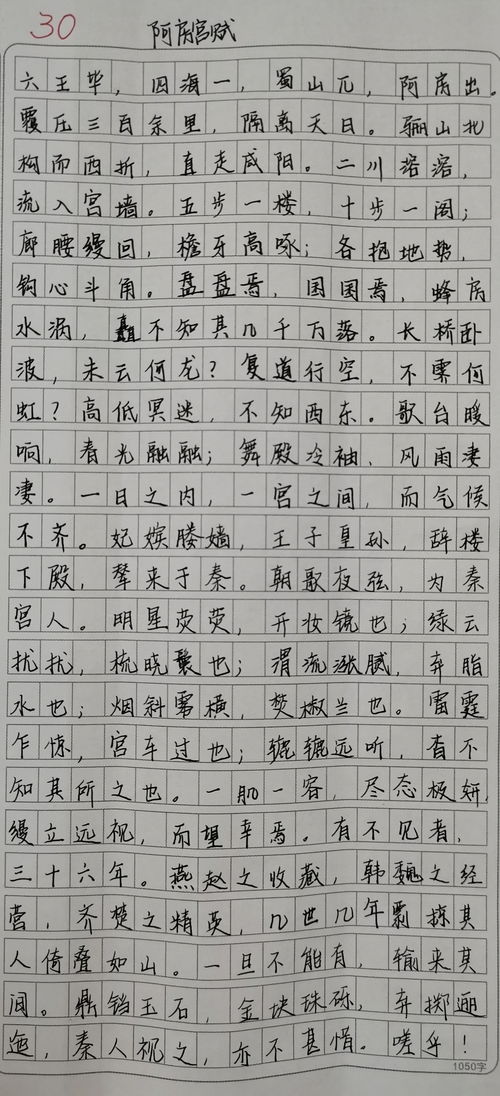 30
阿房宫赋
六王毕，四海一，蜀山兀，阿房出。
覆压三百余里，隔离天日。骊山北
构而西折，直走咸阳。二川溶溶，
流入宫墙。五步一楼，十步一阁；
廊腰缦回，檐牙高啄；各抱地势，
钩心斗角。盘盘焉，囷囷焉，蜂房
水涡，矗不知其几千万落。长桥卧
波，未云何龙？复道行空，不霁何
虹？高低冥迷，不知西东。歌台暖
响，春光融融；舞殿冷袖，风雨凄
凄。一日之内，一宫之间，而气候
不齐。妃嫔媵嫱，王子皇孙，辞楼
下殿，辇来于秦。朝歌夜弦，为秦
宫人。明星荧荧，开妆镜也；绿云
扰扰，梳晓鬟也；渭流涨腻，弃脂
水也；烟斜雾横，焚椒兰也。雷霆
乍惊，宫车过也；辘辘远听，杳不
知其所之也。一肌一容，尽态极妍，
缦立远视，而望幸焉。有不见者，
三十六年。燕赵之收藏，韩魏之经
营，齐楚之精英，几世几年剽掠其
人倚叠如山。一旦不能有，输来其
间。鼎铛玉石，金块珠砾，弃掷逦
迤，秦人视之，亦不甚惜。嗟乎！
1050字